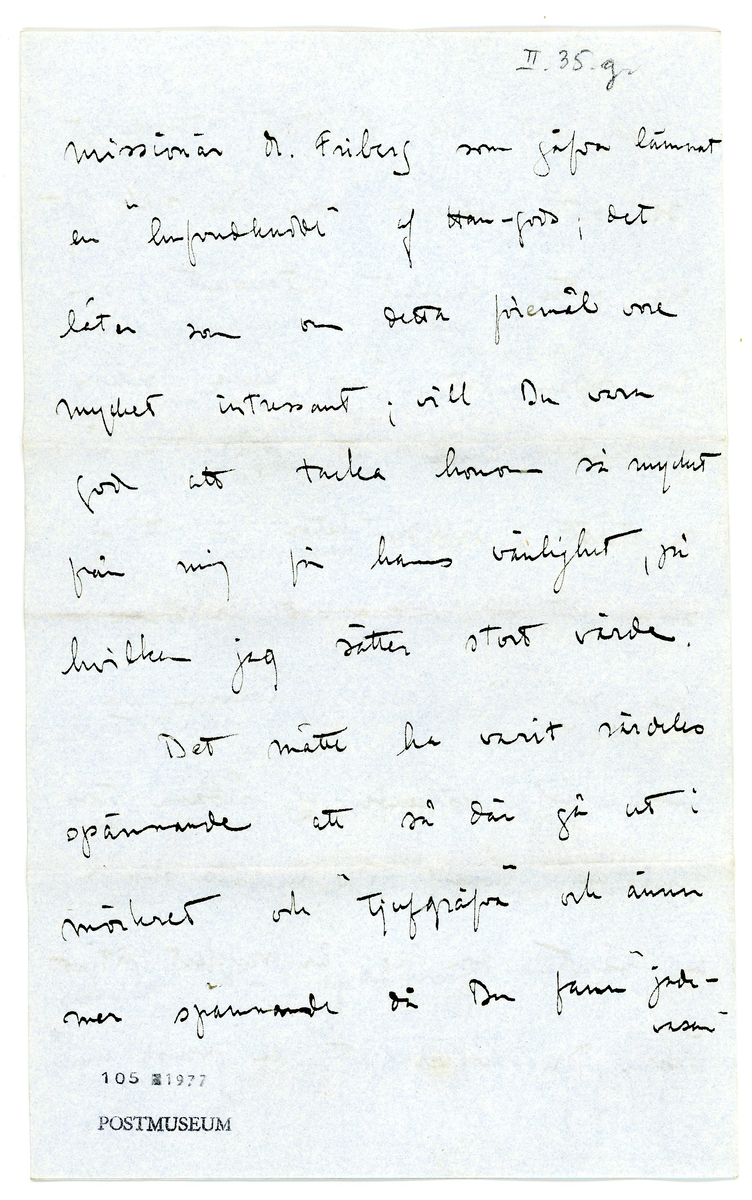 II. 35. g.
missionär dr. Friberg som gåfva lämnat
en " " af Han-gods; det
låter som om detta föremål vore
mycket intressant; vill Du vara
god att tacka honom så mycket
från mig för hans vänlighet, på
hvilken jag sätter stort värde.
Det måtte ha varit särdeles
spännande att så där gå ut i
mörkret och "tjufgräfva" och ännu
mer spännande då Du fann "jade-
vasen"
105 1977
POSTMUSEUM